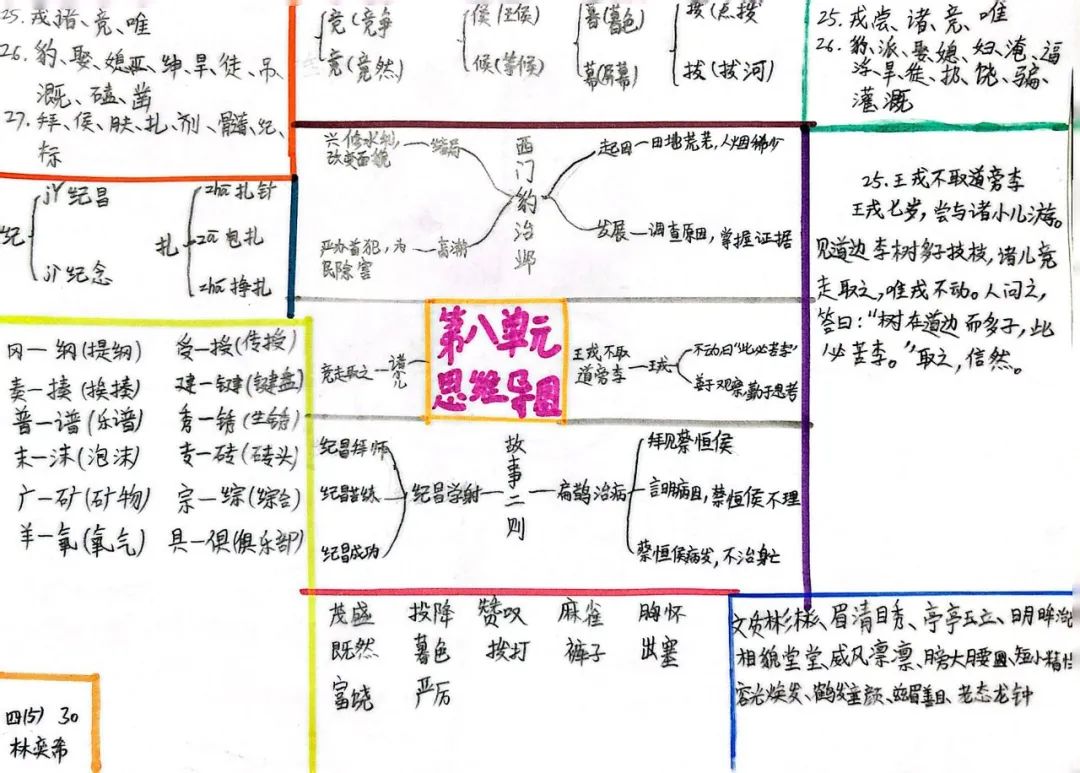 25. 戎诸、竞、唯
26. 豹、娶、媳、绅、旱、徒、吊、
溉、磕、凿
27. 拜、侯、肤、扎、剂、骨髓、纪、
标
竞(竞争
竟(竟然)
侯(王侯)
候(等候)
暮(暮色)
幕(屏幕)
投(点投)
拔(拔河)
25. 戎尝、诸、竞、唯
26. 豹、派、娶、媳、妇、淹、逼
浮、旱、徒、扔、饶、骗、
灌溉
纪
jǐ 纪昌
jì 纪念
扎
zhā 扎针
zā 包扎
zhá 挣扎
兴修水利,
改变面貌
结局
严办首犯,为
民除害
高潮
西门豹治邺
起因—田地荒芜,人烟稀少
发展—调查原因,掌握证据
25.王戎不取道旁李
王戎七岁,尝与诸小儿游。
见道边李树多子折枝,诸儿竞
走取之,唯戎不动。人问之,
答曰:“树在道边而多子,此
必苦李。”取之,信然。
冈—纲(提纲) 受—授(传授)
奏—揍(挨揍) 建—键(键盘)
普—谱(乐谱) 秀—锈(生锈)
末—沫(泡沫) 专—砖(砖头)
广—矿(矿物) 宗—综(综合)
羊—氧(氧气) 具—俱(俱乐部)
竞走取之—诸小儿
第八单元
思维导图
王戎不取
道旁李
王戎
不动曰“此必苦李”
善于观察,勤于思考
纪昌拜师
纪昌苦练
纪昌成功
纪昌学射
故事二则
扁鹊治病
拜见蔡恒侯
言明病因,蔡恒侯不理
蔡恒侯病发,不治身亡
茂盛 投降 赞叹 麻雀 胸怀
既然 暮色 拨打 裤子 出塞
富饶 严厉
文质彬彬、眉清目秀、亭亭玉立、明眸
相貌堂堂、威风凛凛、膀大腰圆、短小精
容光焕发、鹤发童颜、慈眉善目、老态龙钟
四(5) 30
林奕希